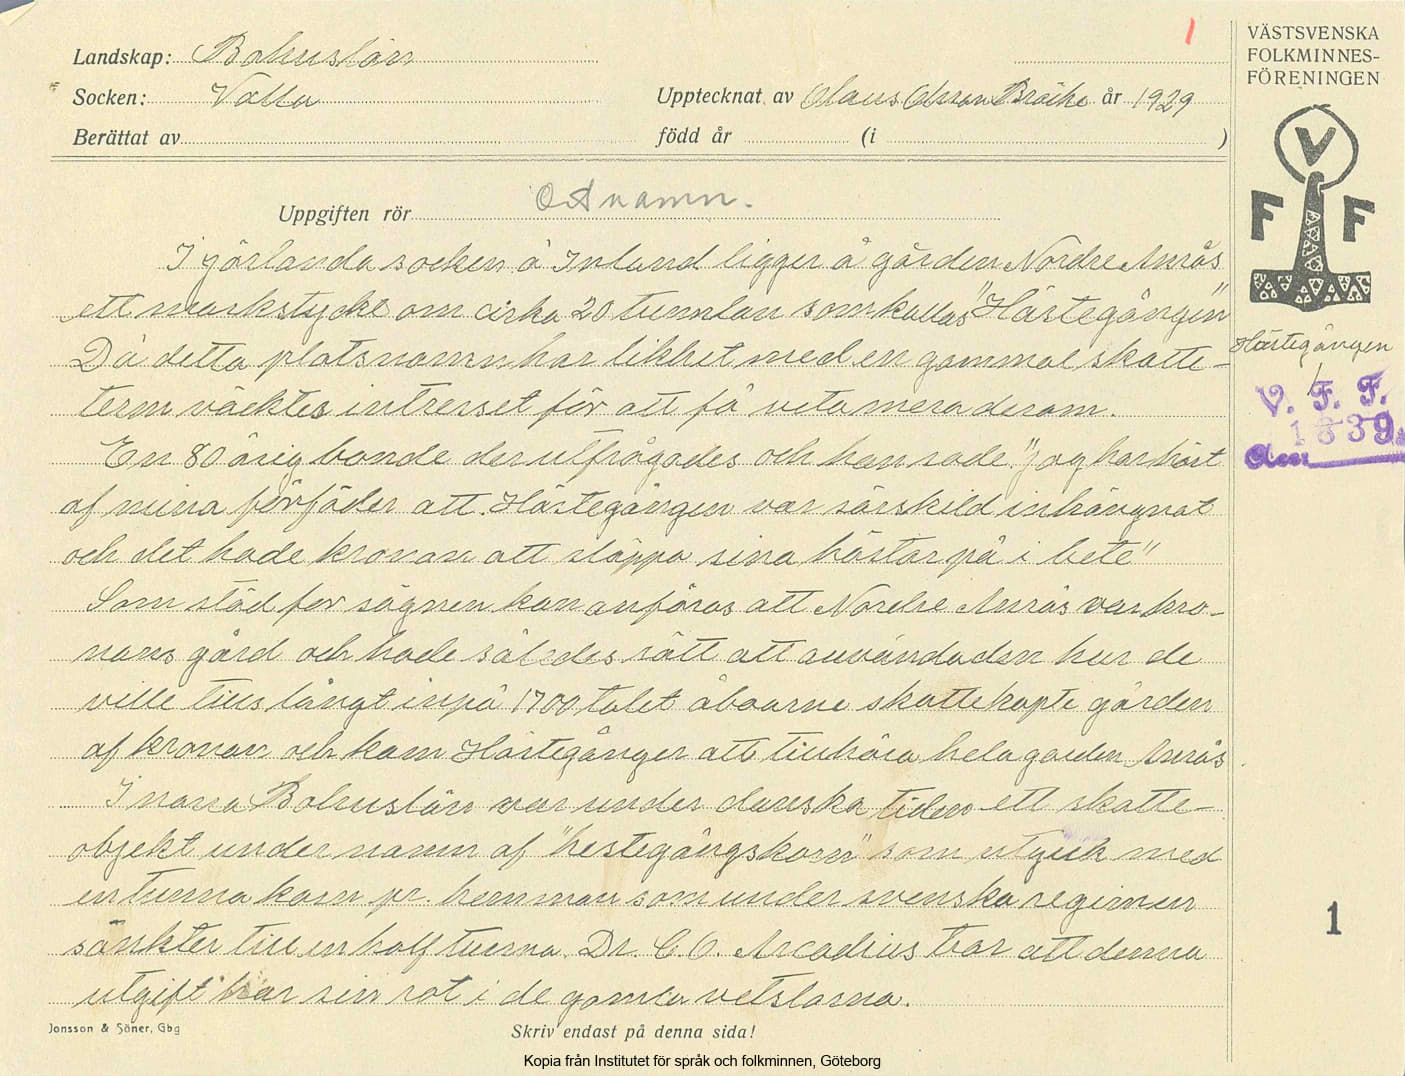 Landskap: Bohuslän
Socken: Valla
Upptecknat av Olaus Olsson Bräcke år 1929
Berättat av
född år (i )
Uppgiften rör Ortnamn.
I Jörlanda socken å Inland ligger å gården Nordre Anrås
ett markstycke om cirka 20 tunnlan som kallas "Hästegången"
Då detta platsnamn har likhet med en gammal skatte-
term väcktes intresset för att få veta mera derom.
En 80 årig bonde der utfrågades och han sade "jag har hört
af mina förfäder att Hästegången var särskild inhängnat
och det hade kronan att släppa sina hästar på i bete"
Som stöd for sägnen kan anföras att Nordre Anrås var kro-
nans gård och hade således rätt att använda den hur de
ville tills långt inpå 1700 talet åboarne skattekøpte gården
af kronan och kom Hästegången att tillhöra hela garden Anrås
I norra Bohuslän var under danska tiden ett skatte-
objekt under namn af "hestegångskorn" som utgick med
en tunna korn pr. hemman som under svenska regimen
sänktes till en half tunna. Dr. C. O. Arcadius tror att denna
utgift har sin rot i de gamla vetslorna.
Jonsson & Söner, Gbg
Skriv endast på denna sida!
VÄSTSVENSKA
FOLKMINNES-
FÖRENINGEN
V
F F
Hästegången
1
V. F. F.
1839
Acc:
1
1
Kopia från Institutet för språk och folkminnen, Göteborg